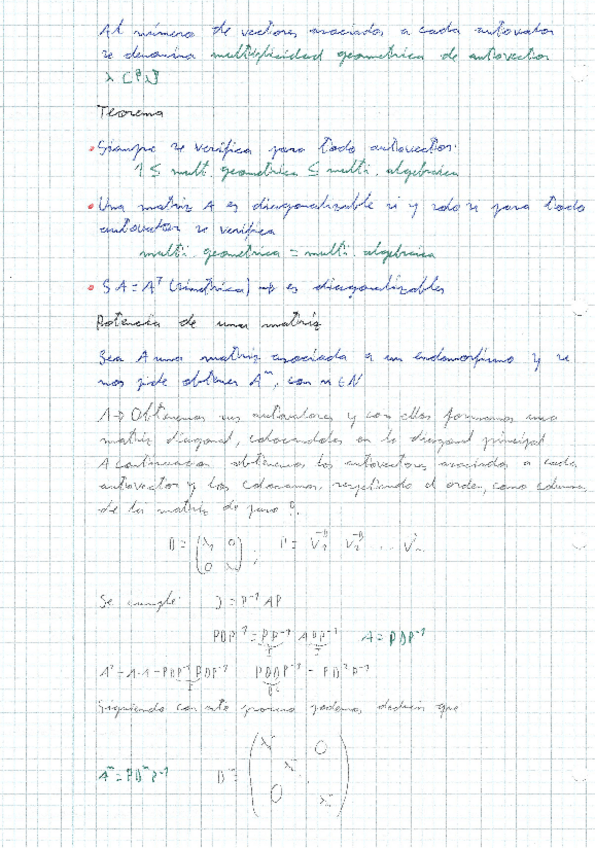 Al número de vectores asociados a cada autovalor
se denomina multiplicidad geometrica de autovector
λ [Pλ]
Teorema
• Siempre se verifica para todo autovector:
1 ≤ mult. geometrica ≤ multi. algebraica
• Una matriz A es diagonalizable si y solo si para todo
autovector se verifica
multi. geometrica = multi. algebraica
• S A = Aᵀ (simétrica) → es diagonalizables
Potencia de una matriz
Sea A una matriz asociada a un endomorfismo y se
nos pide obtener Aⁿ, con n ∈ N
1 → Obtenemos sus autovalores y con ellos formamos una
matriz diagonal, colocandolos en la diagonal principal
A continuacion obtenemos los autovectores asociados a cada
autovector y los colocamos, respetando el orden, como columnas
de la matriz de paso P.
D = (λ 0 0 λ); P = V V ... V
Se cumple: D = P⁻¹AP
PDP⁻¹ = PP⁻¹ A PP⁻¹ A = PDP⁻¹
A² = A·A = PDP⁻¹ PDP⁻¹ PDDP⁻¹ = PD²P⁻¹
Siguiendo con este proceso podemos deducir que
Aⁿ = PDⁿP⁻¹ Dⁿ = (λⁿ 0 λⁿ 0 λⁿ)